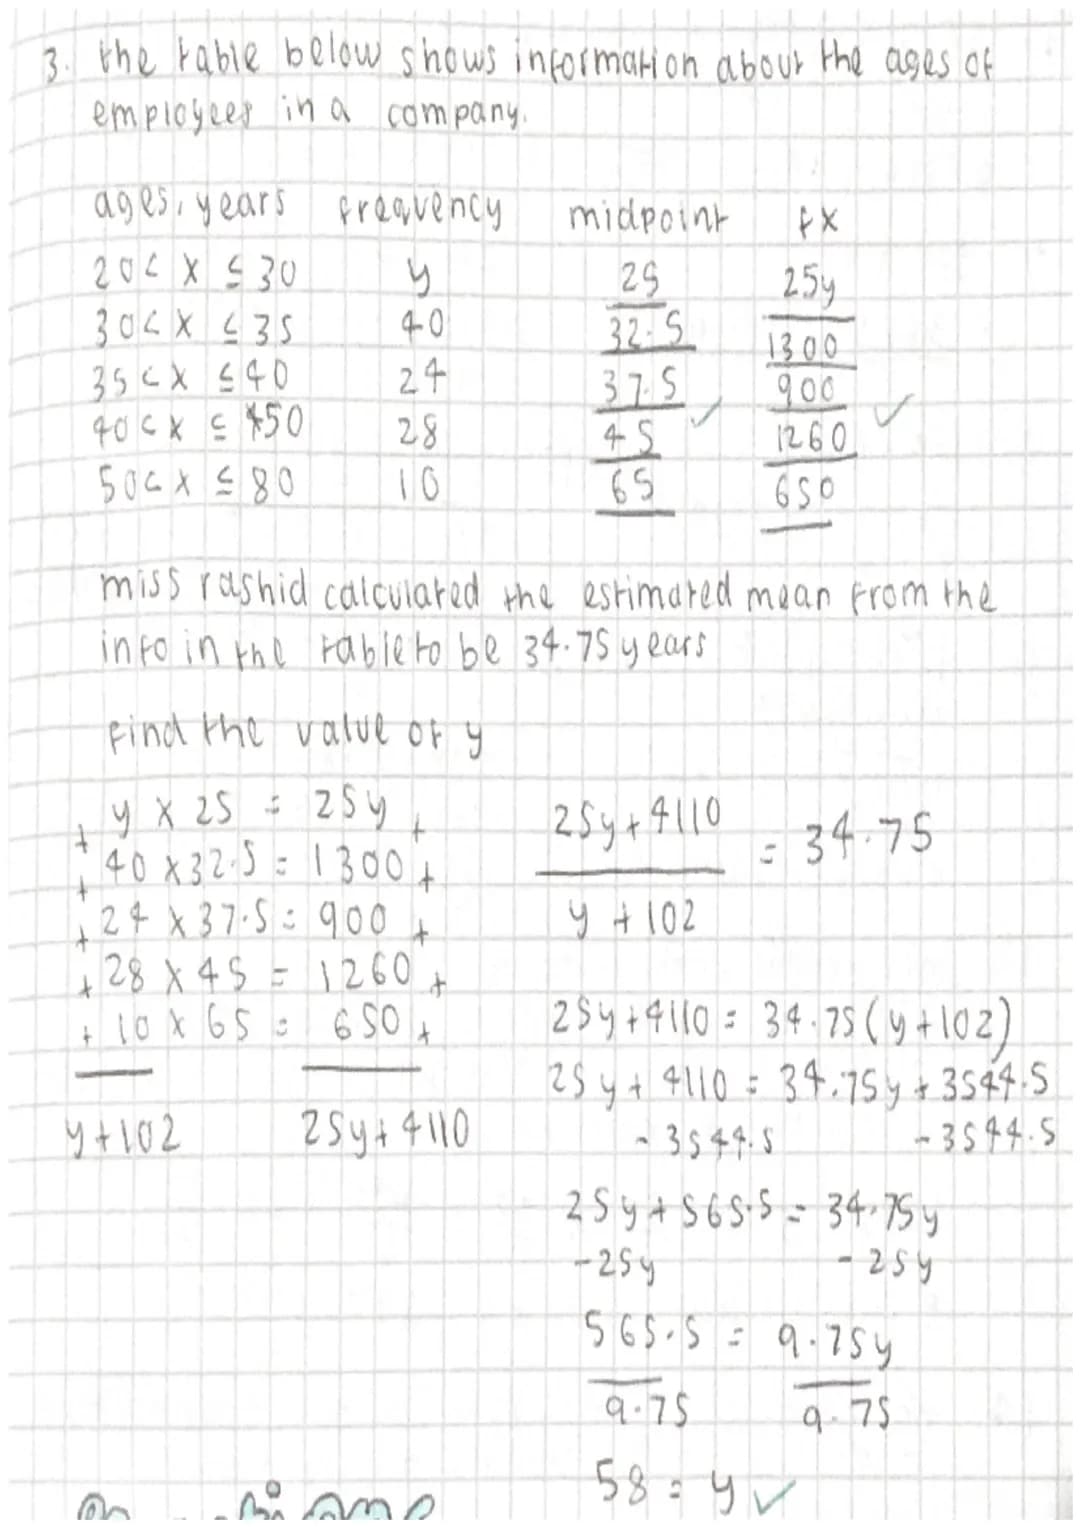 3. the table below shows information about the ages of
employees in a company.
ages, years frequency midpoint fx
20 < x ≤ 30 y 25 25y
30 < x ≤ 35 40 32.5 1300
35 < x ≤ 40 24 37.5 900
40 < x ≤ 50 28 45 1260
50 < x ≤ 80 10 65 650
✓ ✓
miss rashid calculated the estimated mean from the
info in the table to be 34.75 years
find the value of y
y × 25 = 25y +
+ 40 × 32.5 = 1300 +
+ 24 × 37.5 = 900 +
+ 28 × 45 = 1260 +
+ 10 × 65 = 650 +
y + 102 25y + 4110
25y + 4110 = 34.75
y + 102
25y + 4110 = 34.75 (y + 102)
25y + 4110 = 34.75y + 3544.5
- 3544.5 - 3544.5
25y + 565.5 = 34.75y
-25y - 25y
565.5 = 9.75y
9.75 9.75
58 = y ✓